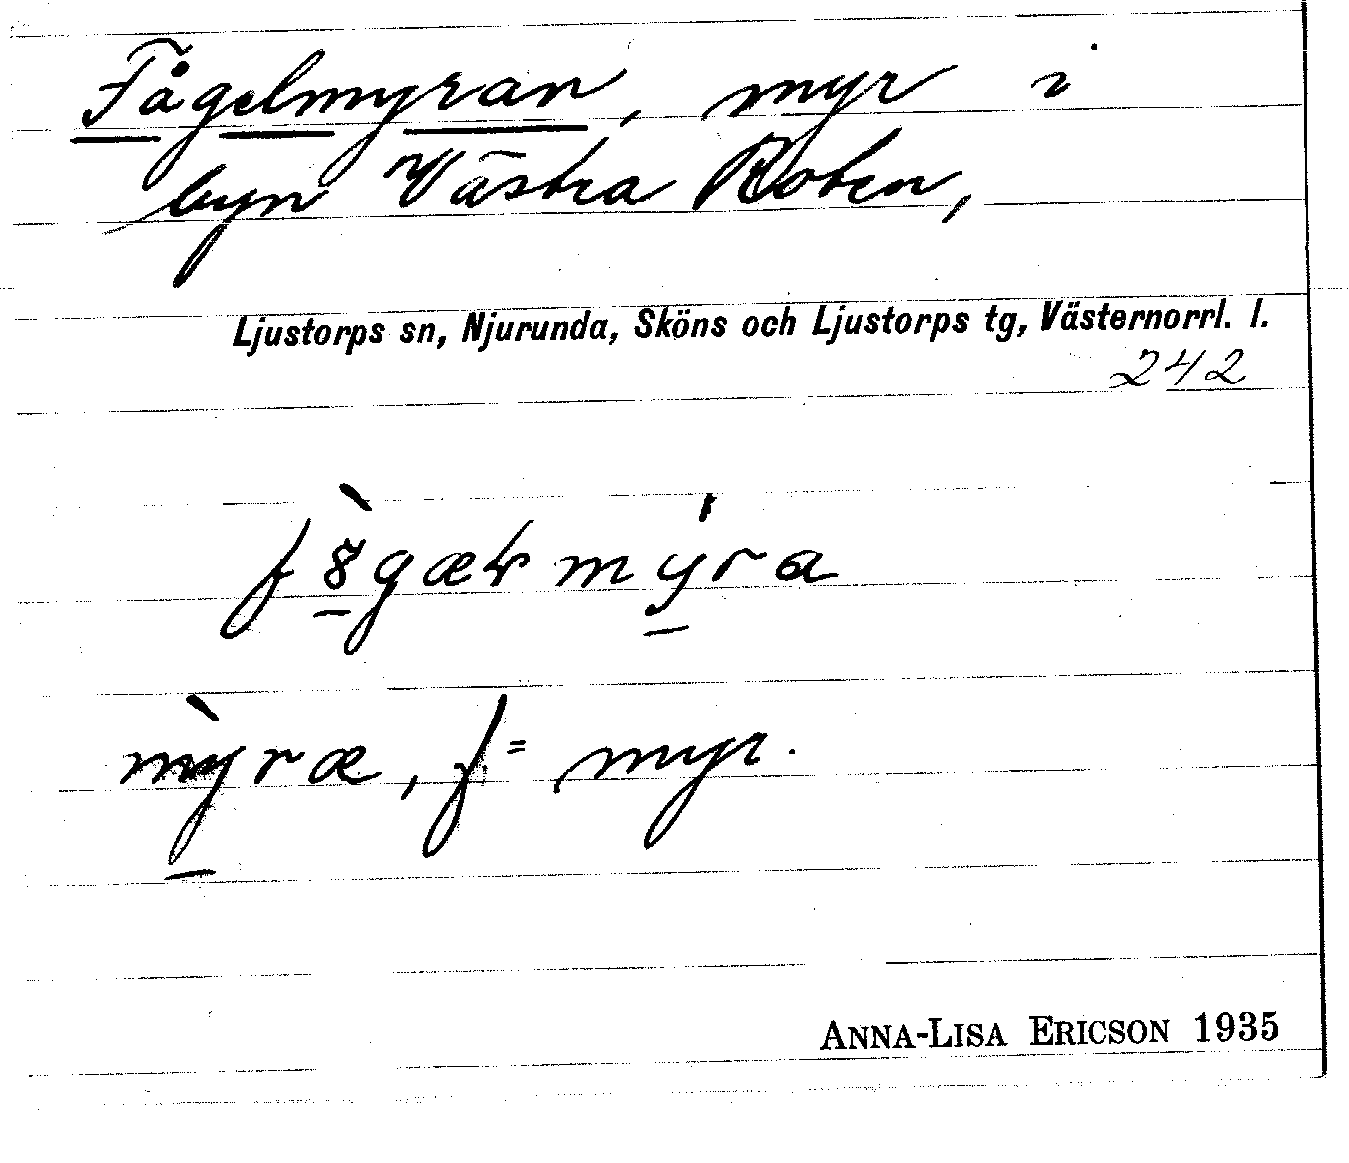 Fågelmyran, myr i
byn Västra Roten,
Ljustorps sn, Njurunda, Sköns och Ljustorps tg, Västernorrl. l.
242
mỳræ, f = myr.
ANNA-LISA ERICSON 1935